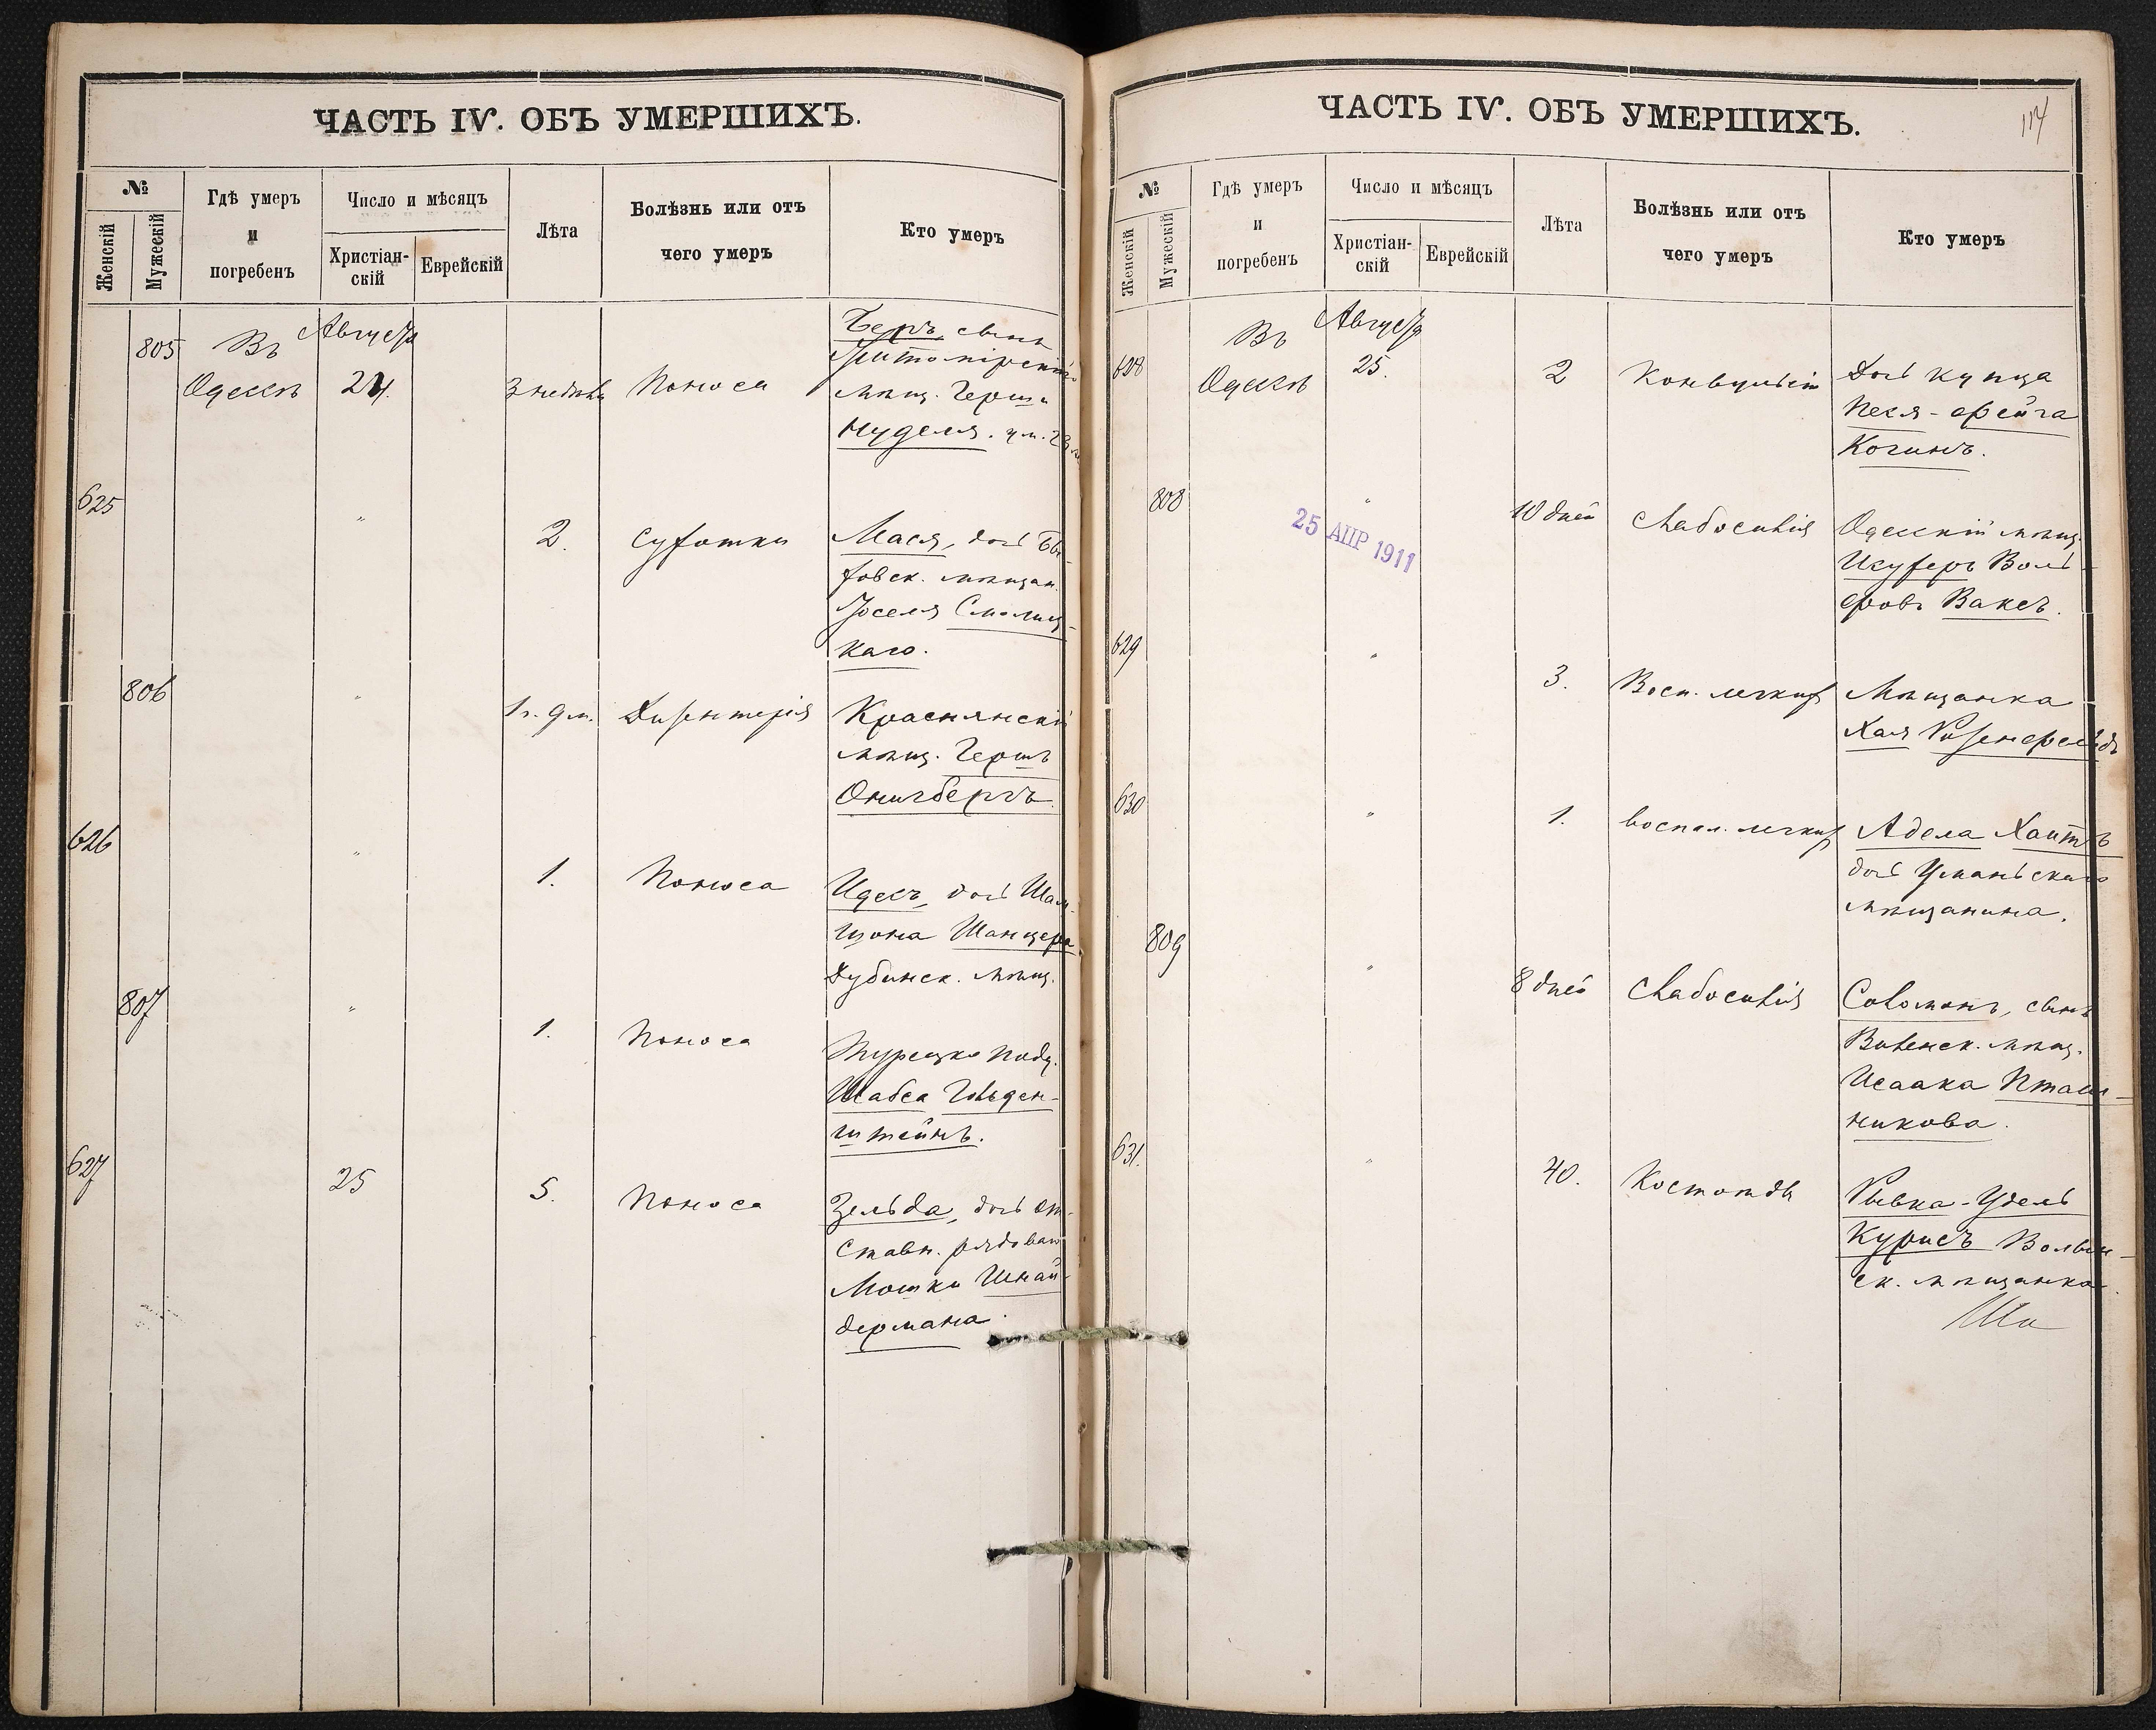 ЧАСТЬ IV. ОБЪ УМЕРШИХЪ.
№
Женскій
Мужескій
Гдѣ умеръ
и
погребенъ
Число и мѣсяцъ
Христіан-
скій
Еврейскій
Лѣта
Болѣзнь или отъ
чего умеръ
Кто умеръ
805
Въ
Одессѣ
Августа
24.
3 недѣль
Поноса
Беръ, сынъ
мѣщ. Герша
Нуделя.
625
"
2.
Сухотки
Мася, дочь
мѣщан.
Іоселя Смолиц-
каго.
806
"
1 г. 9 м.
Дизентерія
Краснянскій
мѣщ. Гершъ
Онигбергъ.
626
"
1.
Поноса
Идесъ, дочь Шам-
шона Шанцера
Дубинск. мѣщ.
807
"
1.
Поноса
Турецко под.
Шабса Гольден-
штейнъ.
627
25
5.
Поноса
Зельда, дочь от-
ставн. рядоваго
Мошки Шнай-
дермана.
ЧАСТЬ IV. ОБЪ УМЕРШИХЪ.
114
№
Женскій
Мужескій
Гдѣ умеръ
и
погребенъ
Число и мѣсяцъ
Христіан-
скій
Еврейскій
Лѣта
Болѣзнь или отъ
чего умеръ
Кто умеръ
628
Въ
Одессѣ
Августа
25.
2
Конвульсіи
Дочь купца
Песя-Фейга
Когинъ.
808
"
25 АПР 1911
10 дней
Слабосилія
Одесскій мѣщ.
Исухеръ Воль-
фовъ Ваксъ.
629
"
3.
Восп. легких
Мѣщанка
Хая Розенфельдъ
630
"
1.
воспал. легких
Адела Хаитъ
дочь Уманьскаго
мѣщанина.
809
"
8 дней
Слабосилія
Соломонъ, сынъ
Виленск. мѣщ.
Исаака Пташ-
никова.
631.
"
40.
Костоѣда
Рывка-Удель
Курисъ Волын-
ск. мѣщанка.